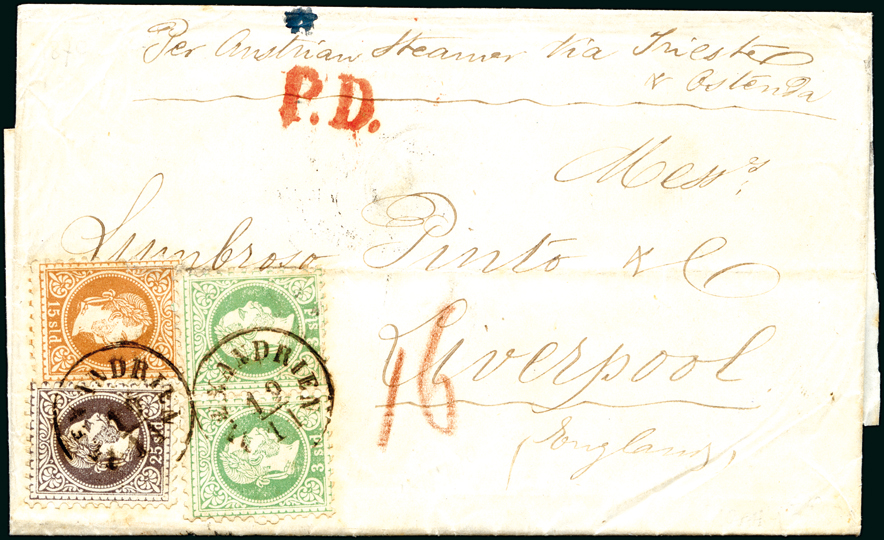 Per Austrian Steamer via Trieste
& Ostenda
P.D.
Mess.rs
Lumbroso Pinto & C
Liverpool
England
16
15 sld
25 sld
3 sld
3 sld
ALEXANDRIEN
ALEXANDRIEN